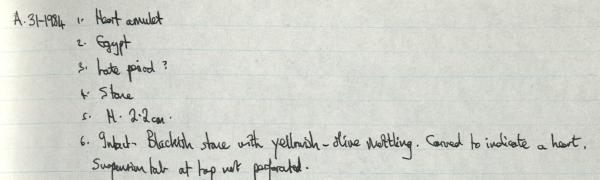 A.31-1984 1. Heart amulet
2. Egypt
3. Late period ?
4. Stone
5. H. 2.2cm.
6. Intact - Blackish stone with yellowish-olive mottling. Carved to indicate a heart.
Suspension tab at top not perforated.